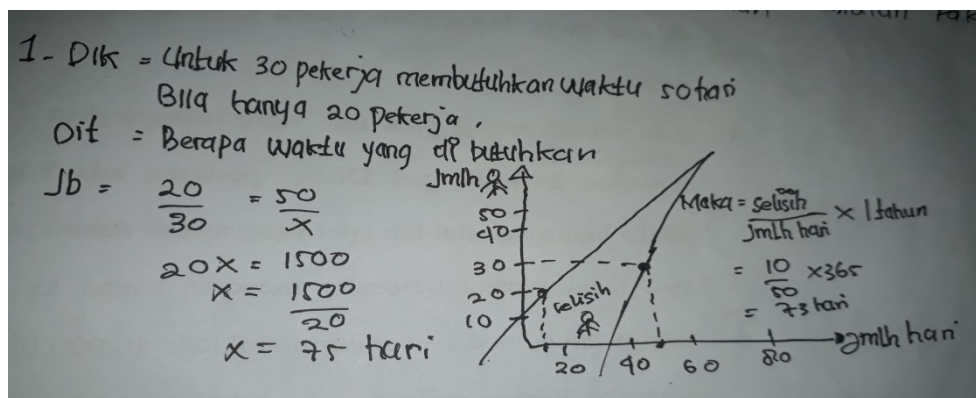 1- Dik = Untuk 30 pekerja membutuhkan waktu 50 hari
Bila hanya 20 pekerja.
Dit = Berapa waktu yang di butuhkan
Jb = 20/30 = 50/x
20x = 1500
x = 1500/20
x = 75 hari
Jmlh
50
40
30
20
10
selisih
20 40 60 80
Jmlh hari
Maka = selisih/Jmlh hari × 1 tahun
= 10/50 ×365
= 73 hari